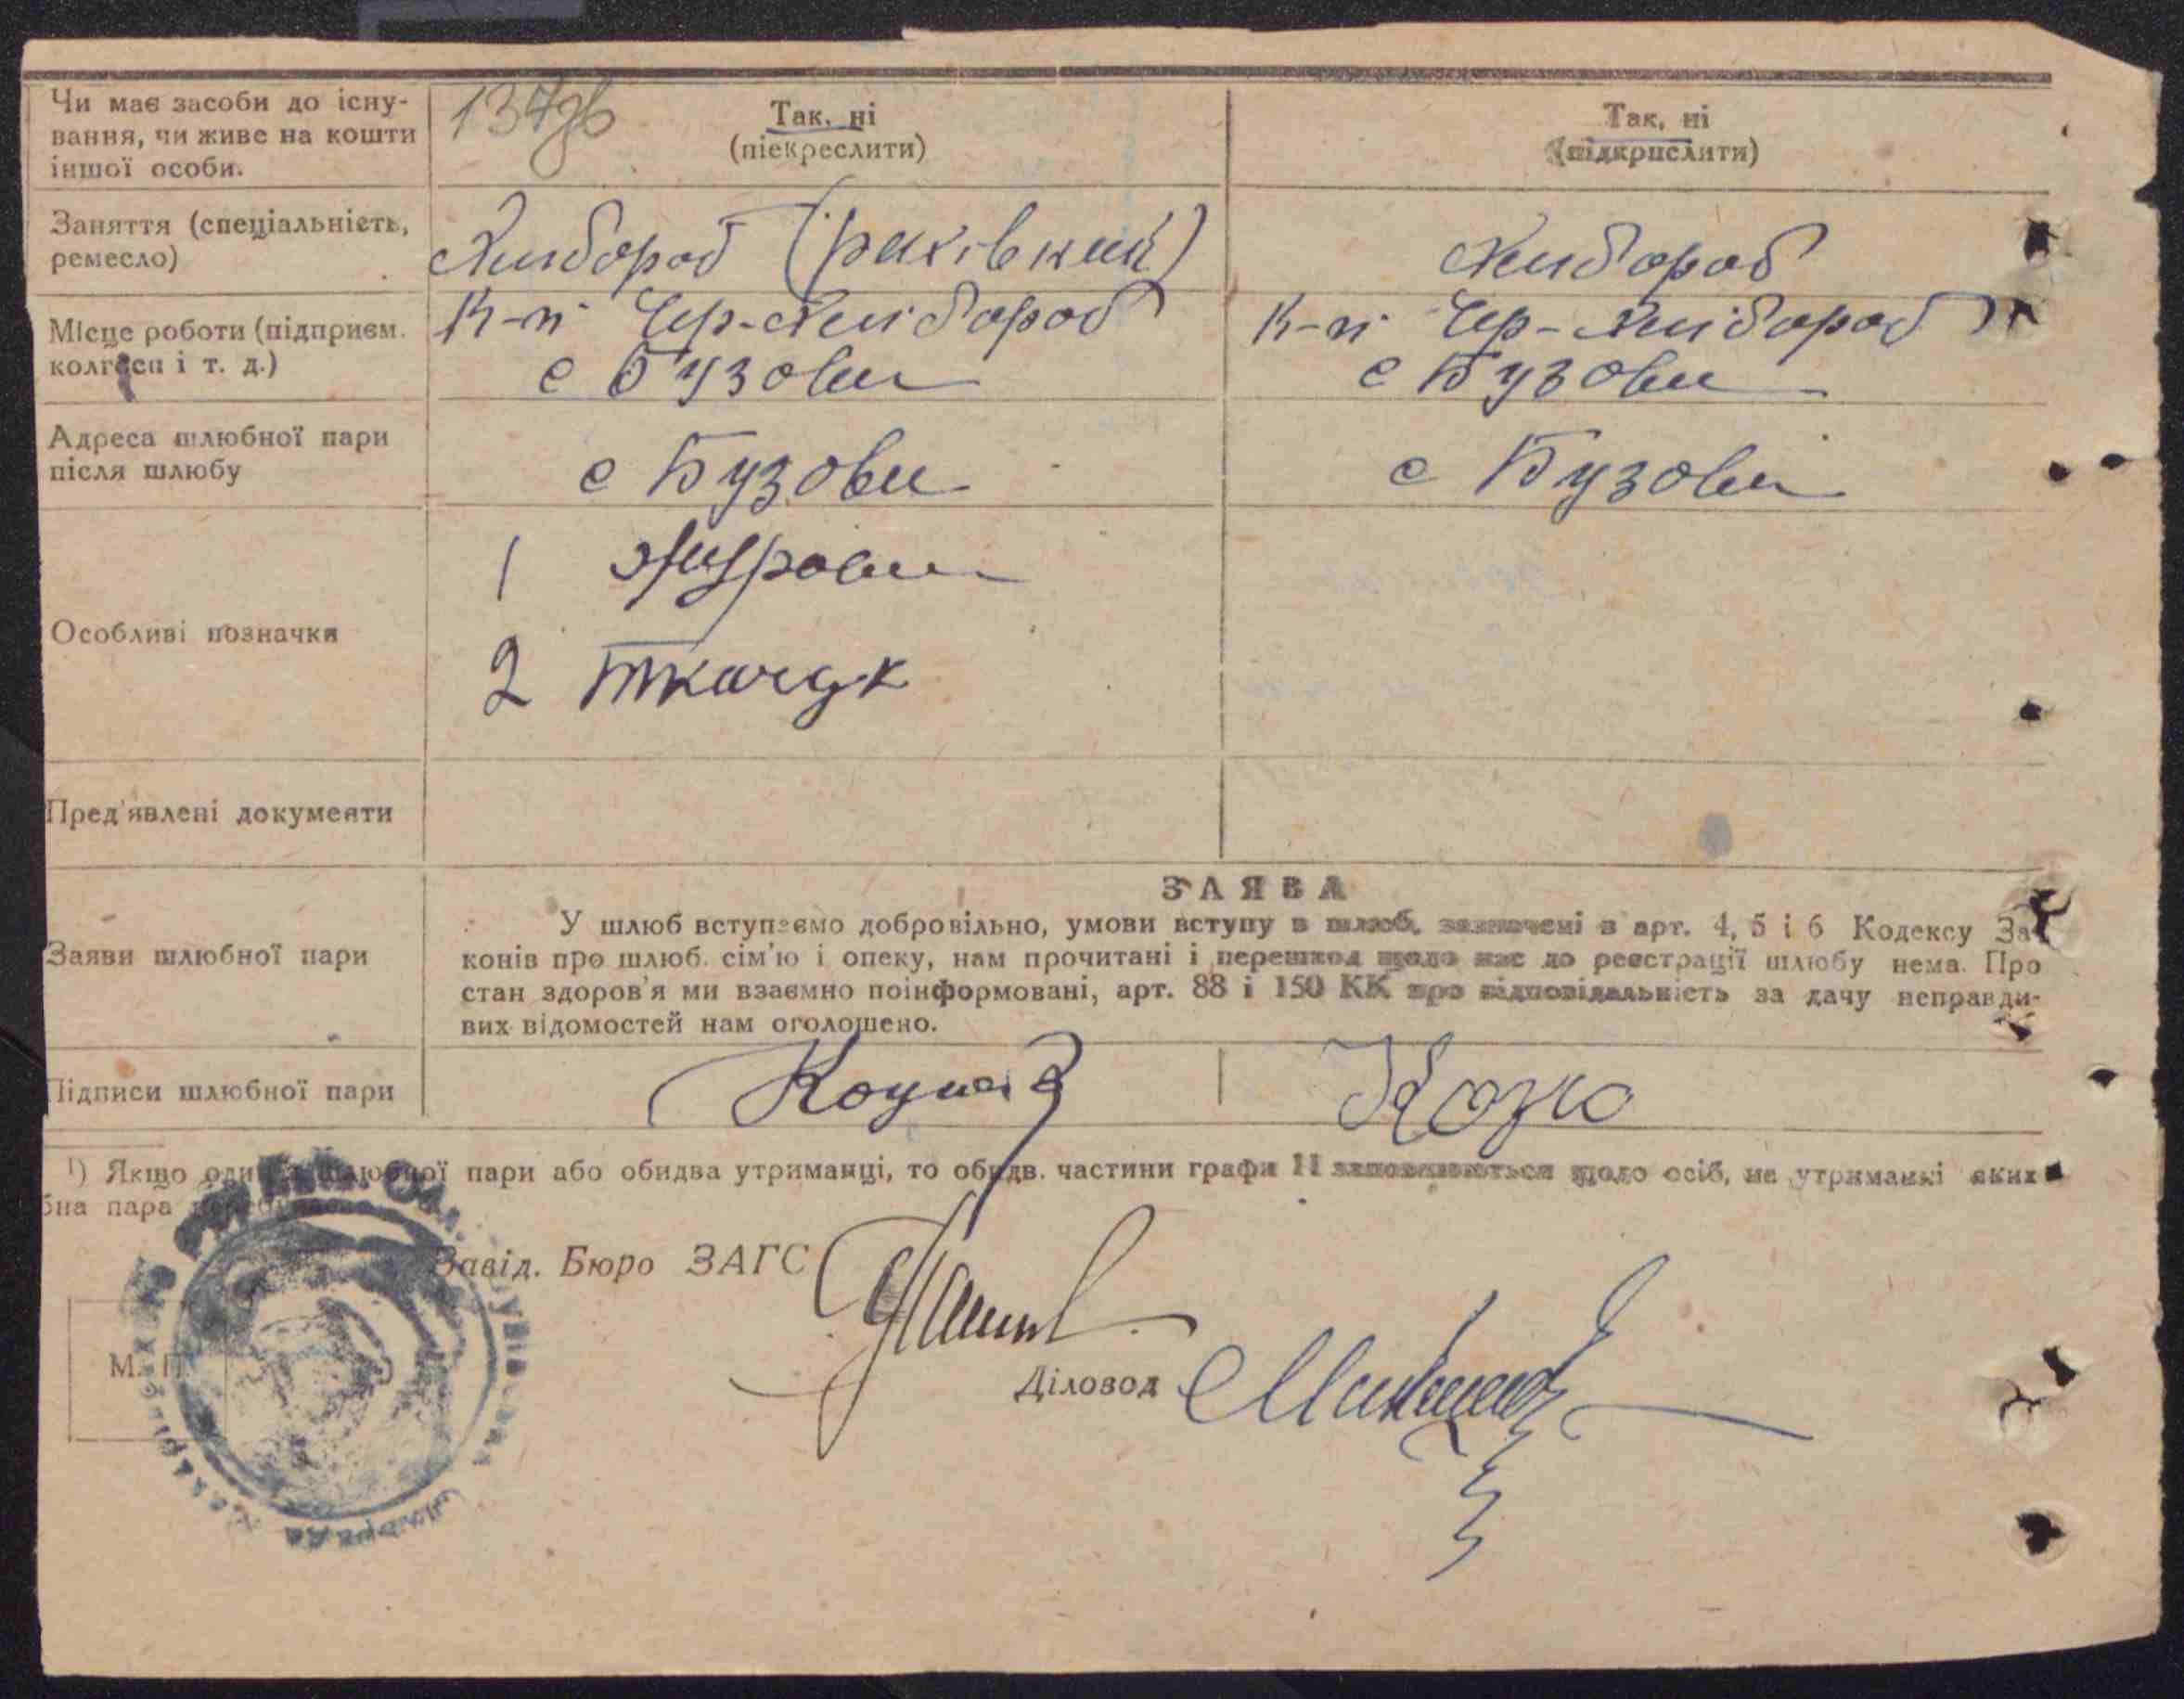 Чи має засоби до існу-
вання, чи живе на кошти
іншої особи.
Так, ні
(піекреслити)
Так, ні
(підкрислити)
Заняття (спеціальність,
ремесло)
Хлибороб (рахівник)
Хлибороб
Місце роботи (підприєм.
колгосп і т. д.)
К-п Чер-Хлибороб
с Бузови
К-п Чер-Хлибороб
с Бузови
Адреса шлюбної пари
після шлюбу
с Бузови
с Бузови
Особливі позначки
1
2 Ткачук
Пред'явлені документи
ЗАЯВА
Заяви шлюбної пари
У шлюб вступаємо добровільно, умови вступу в шлюб, зазначені в арт. 4, 5 і 6 Кодексу За-
конів про шлюб. сім'ю і опеку, нам прочитані і перешкод щодо нас до реєстрації шлюбу нема. Про
стан здоров'я ми взаємно поінформовані, арт. 88 і 150 КК про відповідальність за дачу неправди-
вих відомостей нам оголошено.
Підписи шлюбної пари
1) Якщо один з шлюбної пари або обидва утриманці, то обидв. частини графи 11 заповнюються щодо осіб, на утриманні яких
бна пара перебуває.
Завід. Бюро ЗАГС
М. П.
Діловод